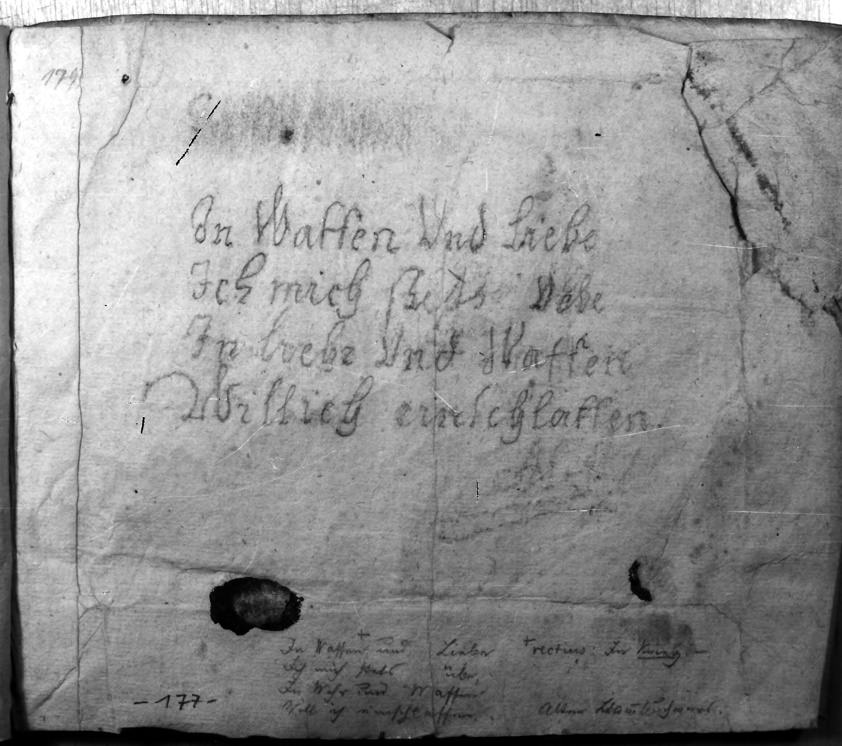 179
In Waffen Und Liebe
Ich mich stets Vbe
In Wehr Und Waffen
Will ich einschlaffen.
In Waffen + und Liebe + rectius: In
Ich mich stets übe,
In Wehr und Waffen
Will ich einschlaffen.
-177-